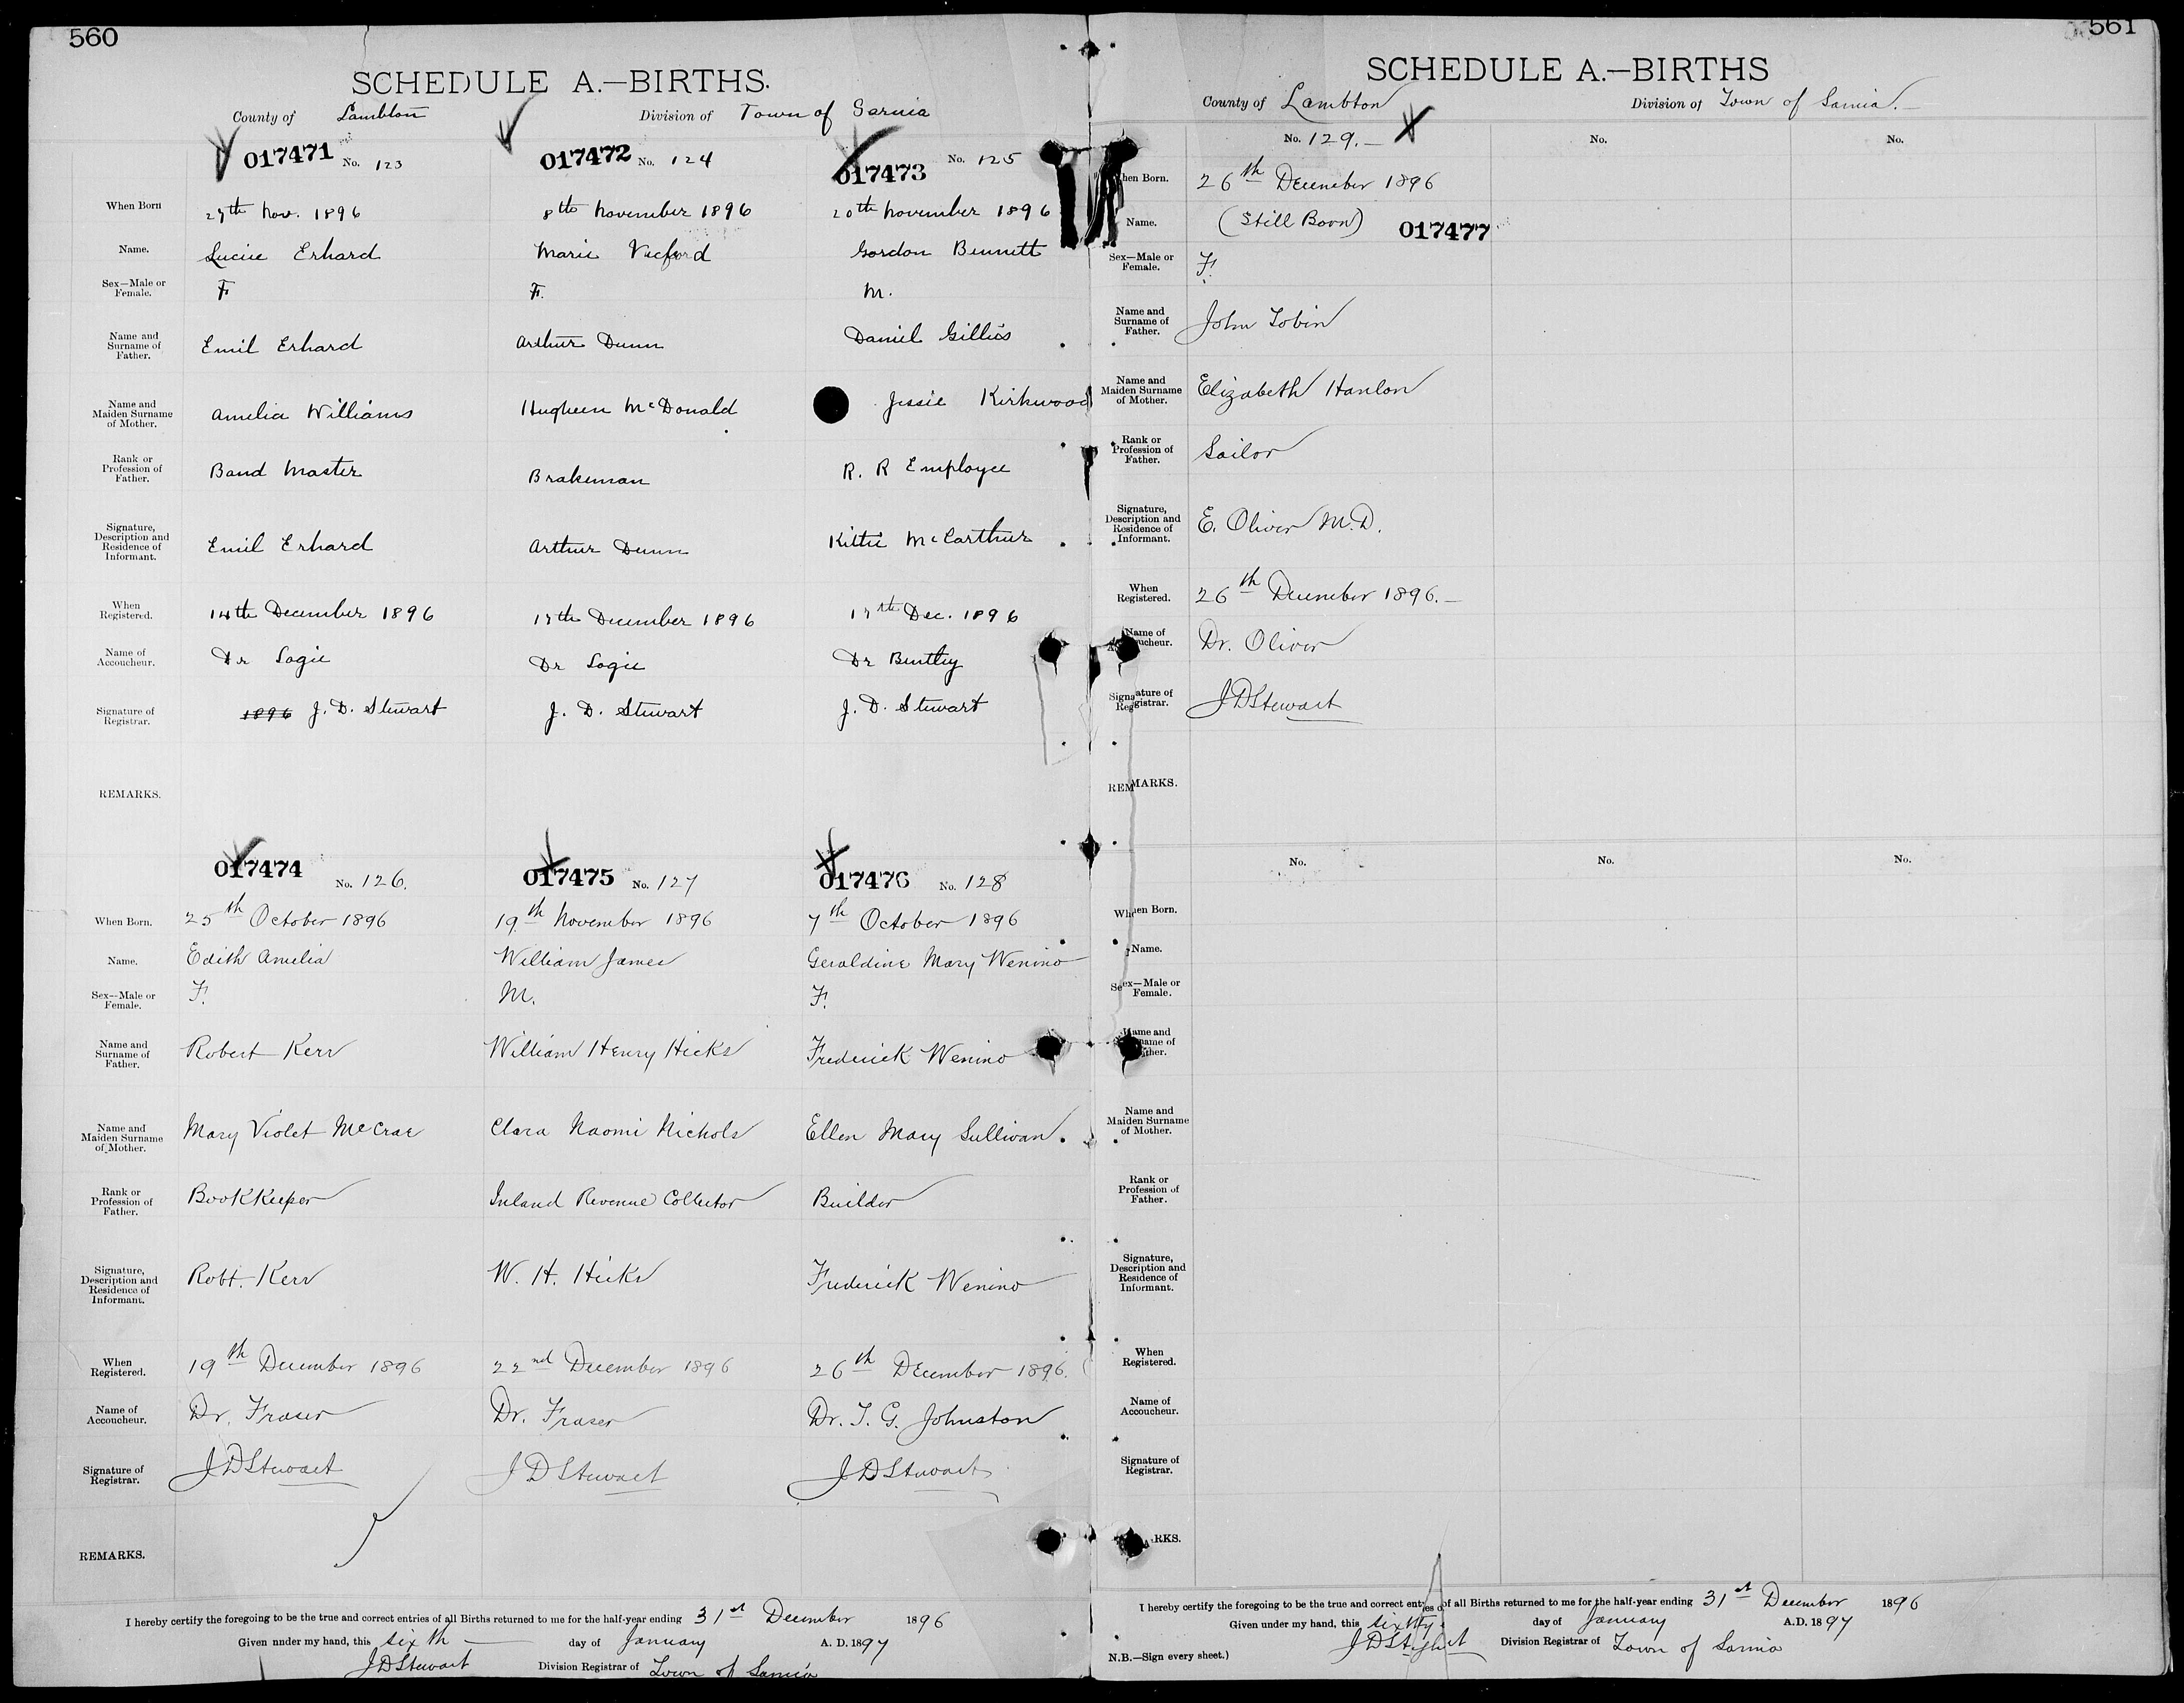 560
SCHEDULE A.—BIRTHS.
County of Lambton Division of Town of Sarnia
017471 No. 123 017472 No. 124 017473 No. 125
When Born 27th Nov. 1896 8th November 1896 20th November 1896
Name. Erhard Marie Gordon Bennett
Sex—Male or Female. F F. M.
Name and Surname of Father. Emil Erhard Arthur Dunn Daniel Gillies
Name and Maiden Surname of Mother. Amelia Williams Hugheen McDonald Jessie Kirkwood
Rank or Profession of Father. Band Master Brakeman R. R Employee
Signature, Description and Residence of Informant. Emil Erhard Arthur Dunn Kittie McCarthur
When Registered. 14th December 1896 17th December 1896 17th Dec. 1896
Name of Accoucheur. Dr Logie Dr Logie Dr Bentley
Signature of Registrar. 1896 J. D. Stewart J. D. Stewart J. D. Stewart
REMARKS.
017474 No. 126. 017475 No. 127 017476 No. 128
When Born. 25th October 1896 19th November 1896 7th October 1896
Name. Edith Amelia William James Geraldine Mary Wenino
Sex—Male or Female. F. M. F.
Name and Surname of Father. Robert Kerr William Henry Hicks Frederick Wenino
Name and Maiden Surname of Mother. Mary Violet McCrae Clara Naomi Nichols Ellen Mary Sullivan.
Rank or Profession of Father. BookKeeper Inland Revenue Collector Builder
Signature, Description and Residence of Informant. Robt. Kerr W. H. Hicks Frederick Wenino
When Registered. 19th December 1896 22nd December 1896 26th December 1896.
Name of Accoucheur. Dr. Fraser Dr. Fraser Dr. T. G. Johnston
Signature of Registrar. JDStewart JDStewart JDStewart
REMARKS.
I hereby certify the foregoing to be the true and correct entries of all Births returned to me for the half-year ending 31st December 1896
Given under my hand, this sixth day of January A. D. 1897
JDStewart Division Registrar of Town of Sarnia
561
SCHEDULE A.—BIRTHS
County of Lambton Division of Town of Sarnia.
No. 129. No. No.
When Born. 26th December 1896
Name. (Still Born) 017477
Sex—Male or Female. F.
Name and Surname of Father. John Tobin
Name and Maiden Surname of Mother. Elizabeth Hanlon
Rank or Profession of Father. Sailor
Signature, Description and Residence of Informant. E. Oliver M.D.
When Registered. 26th December 1896.
Name of Accoucheur. Dr. Oliver
Signature of Registrar. JDStewart
REMARKS.
No. No. No.
When Born.
Name.
Sex—Male or Female.
Name and Surname of Father.
Name and Maiden Surname of Mother.
Rank or Profession of Father.
Signature, Description and Residence of Informant.
When Registered.
Name of Accoucheur.
Signature of Registrar.
RKS.
I hereby certify the foregoing to be the true and correct entries of all Births returned to me for the half-year ending 31st December 1896
Given under my hand, this day of January A.D. 1897
N.B.—Sign every sheet.) JDStewart Division Registrar of Town of Sarnia